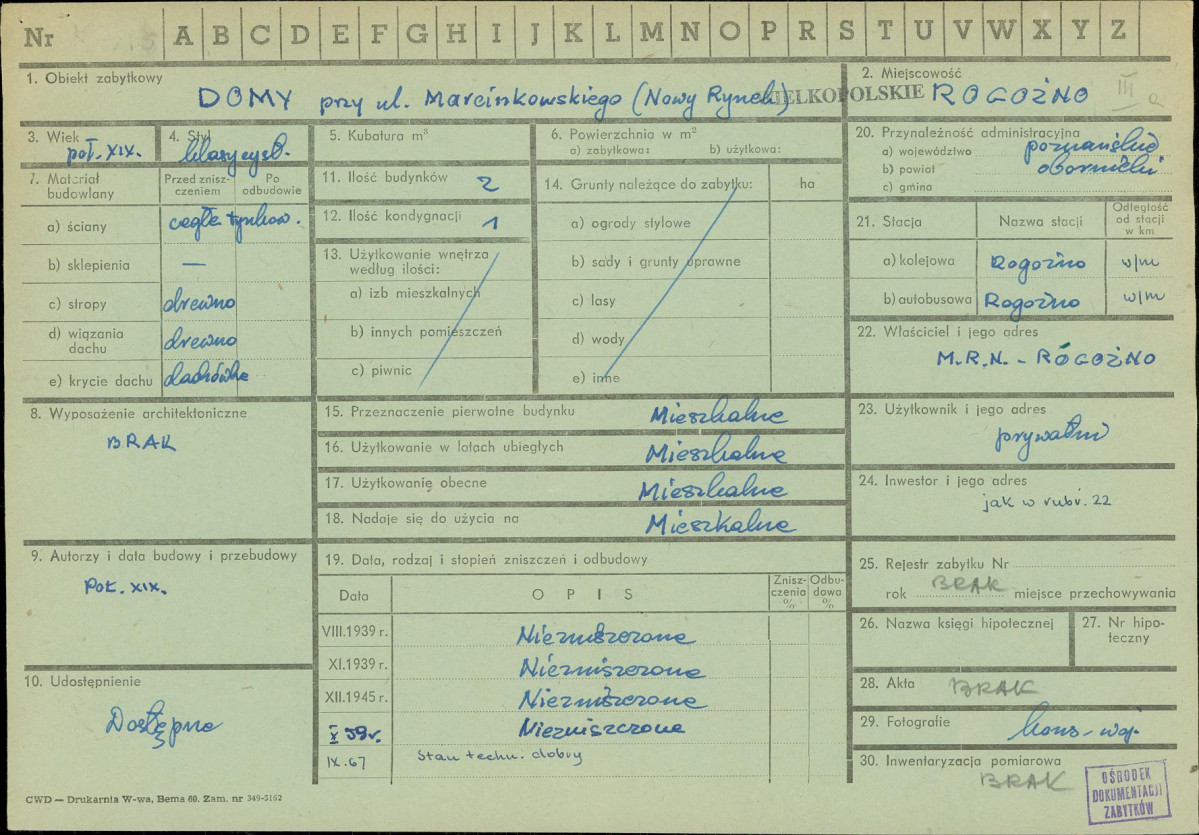 Nr
A B C D E F G H I J K L M N O P R S T U V W X Y Z
1. Obiekt zabytkowy
DOMY przy ul. Marcinkowskiego (Nowy Rynek)
WIELKOPOLSKIE
2. Miejscowość
ROGOŹNO
III a
3. Wiek
poł. XIX.
4. Styl
klasycyst.
5. Kubatura m³
6. Powierzchnia w m²
a) zabytkowa: b) użytkowa:
7. Materiał budowlany
Przed zniszczeniem
Po odbudowie
a) ściany
cegła tynkow.
b) sklepienia
—
c) stropy
drewno
d) wiązania dachu
drewno
e) krycie dachu
dachówka
8. Wyposażenie architektoniczne
BRAK
9. Autorzy i data budowy i przebudowy
Poł. XIX.
10. Udostępnienie
Dostępne
11. Ilość budynków
2
12. Ilość kondygnacji
1
13. Użytkowanie wnętrza według ilości:
a) izb mieszkalnych
b) innych pomieszczeń
c) piwnic
14. Grunty należące do zabytku:
ha
a) ogrody stylowe
b) sady i grunty uprawne
c) lasy
d) wody
e) inne
15. Przeznaczenie pierwotne budynku
Mieszkalne
16. Użytkowanie w latach ubiegłych
Mieszkalne
17. Użytkowanie obecne
Mieszkalne
18. Nadaje się do użycia na
Mieszkalne
19. Data, rodzaj i stopień zniszczeń i odbudowy
Data
OPIS
Zniszczenia %
Odbudowa %
VIII.1939 r.
Niezniszczone
XI.1939 r.
Niezniszczone
XII.1945 r.
Niezniszczone
X 59r.
Niezniszczone
IX.67
Stan techn. dobry
20. Przynależność administracyjna
a) województwo poznańskie
b) powiat obornicki
c) gmina
21. Stacja
Nazwa stacji
Odległość od stacji w km
a) kolejowa
Rogoźno
w/m
b) autobusowa
Rogoźno
w/m
22. Właściciel i jego adres
M.R.N. - ROGOŹNO
23. Użytkownik i jego adres
prywatni
24. Inwestor i jego adres
jak w rubr. 22
25. Rejestr zabytku Nr
rok BRAK miejsce przechowywania
26. Nazwa księgi hipotecznej
27. Nr hipoteczny
28. Akta
BRAK
29. Fotografie
Kons. woj.
30. Inwentaryzacja pomiarowa
BRAK
OŚRODEK
DOKUMENTACJI
ZABYTKÓW
CWD — Drukarnia W-wa, Bema 60. Zam. nr 349-5162